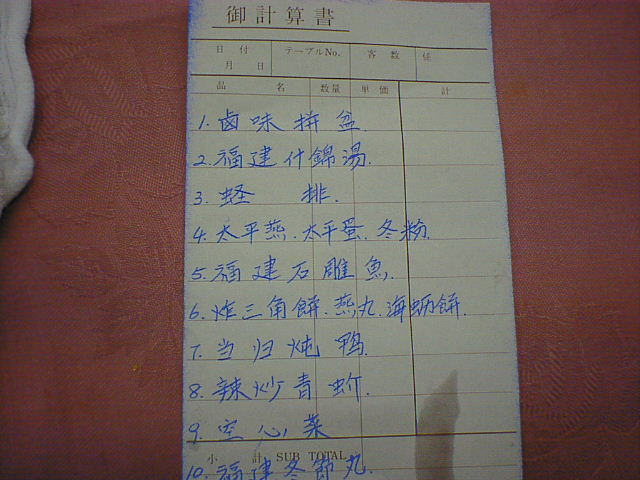 御計算書
日付 月 日 テーブルNo. 客数 係
品名 数量 単価 計
1. 鹵味拼盆.
2. 福建什錦湯.
3. 蛏 排.
4. 太平燕. 太平蛋. 冬粉.
5. 福建石雕魚.
6. 炸三角餅. 燕丸. 海蛎餅.
7. 当归炖鸭.
8. 辣炒青蚧.
9. 空心菜
小計 SUB TOTAL
10. 福建冬節丸.